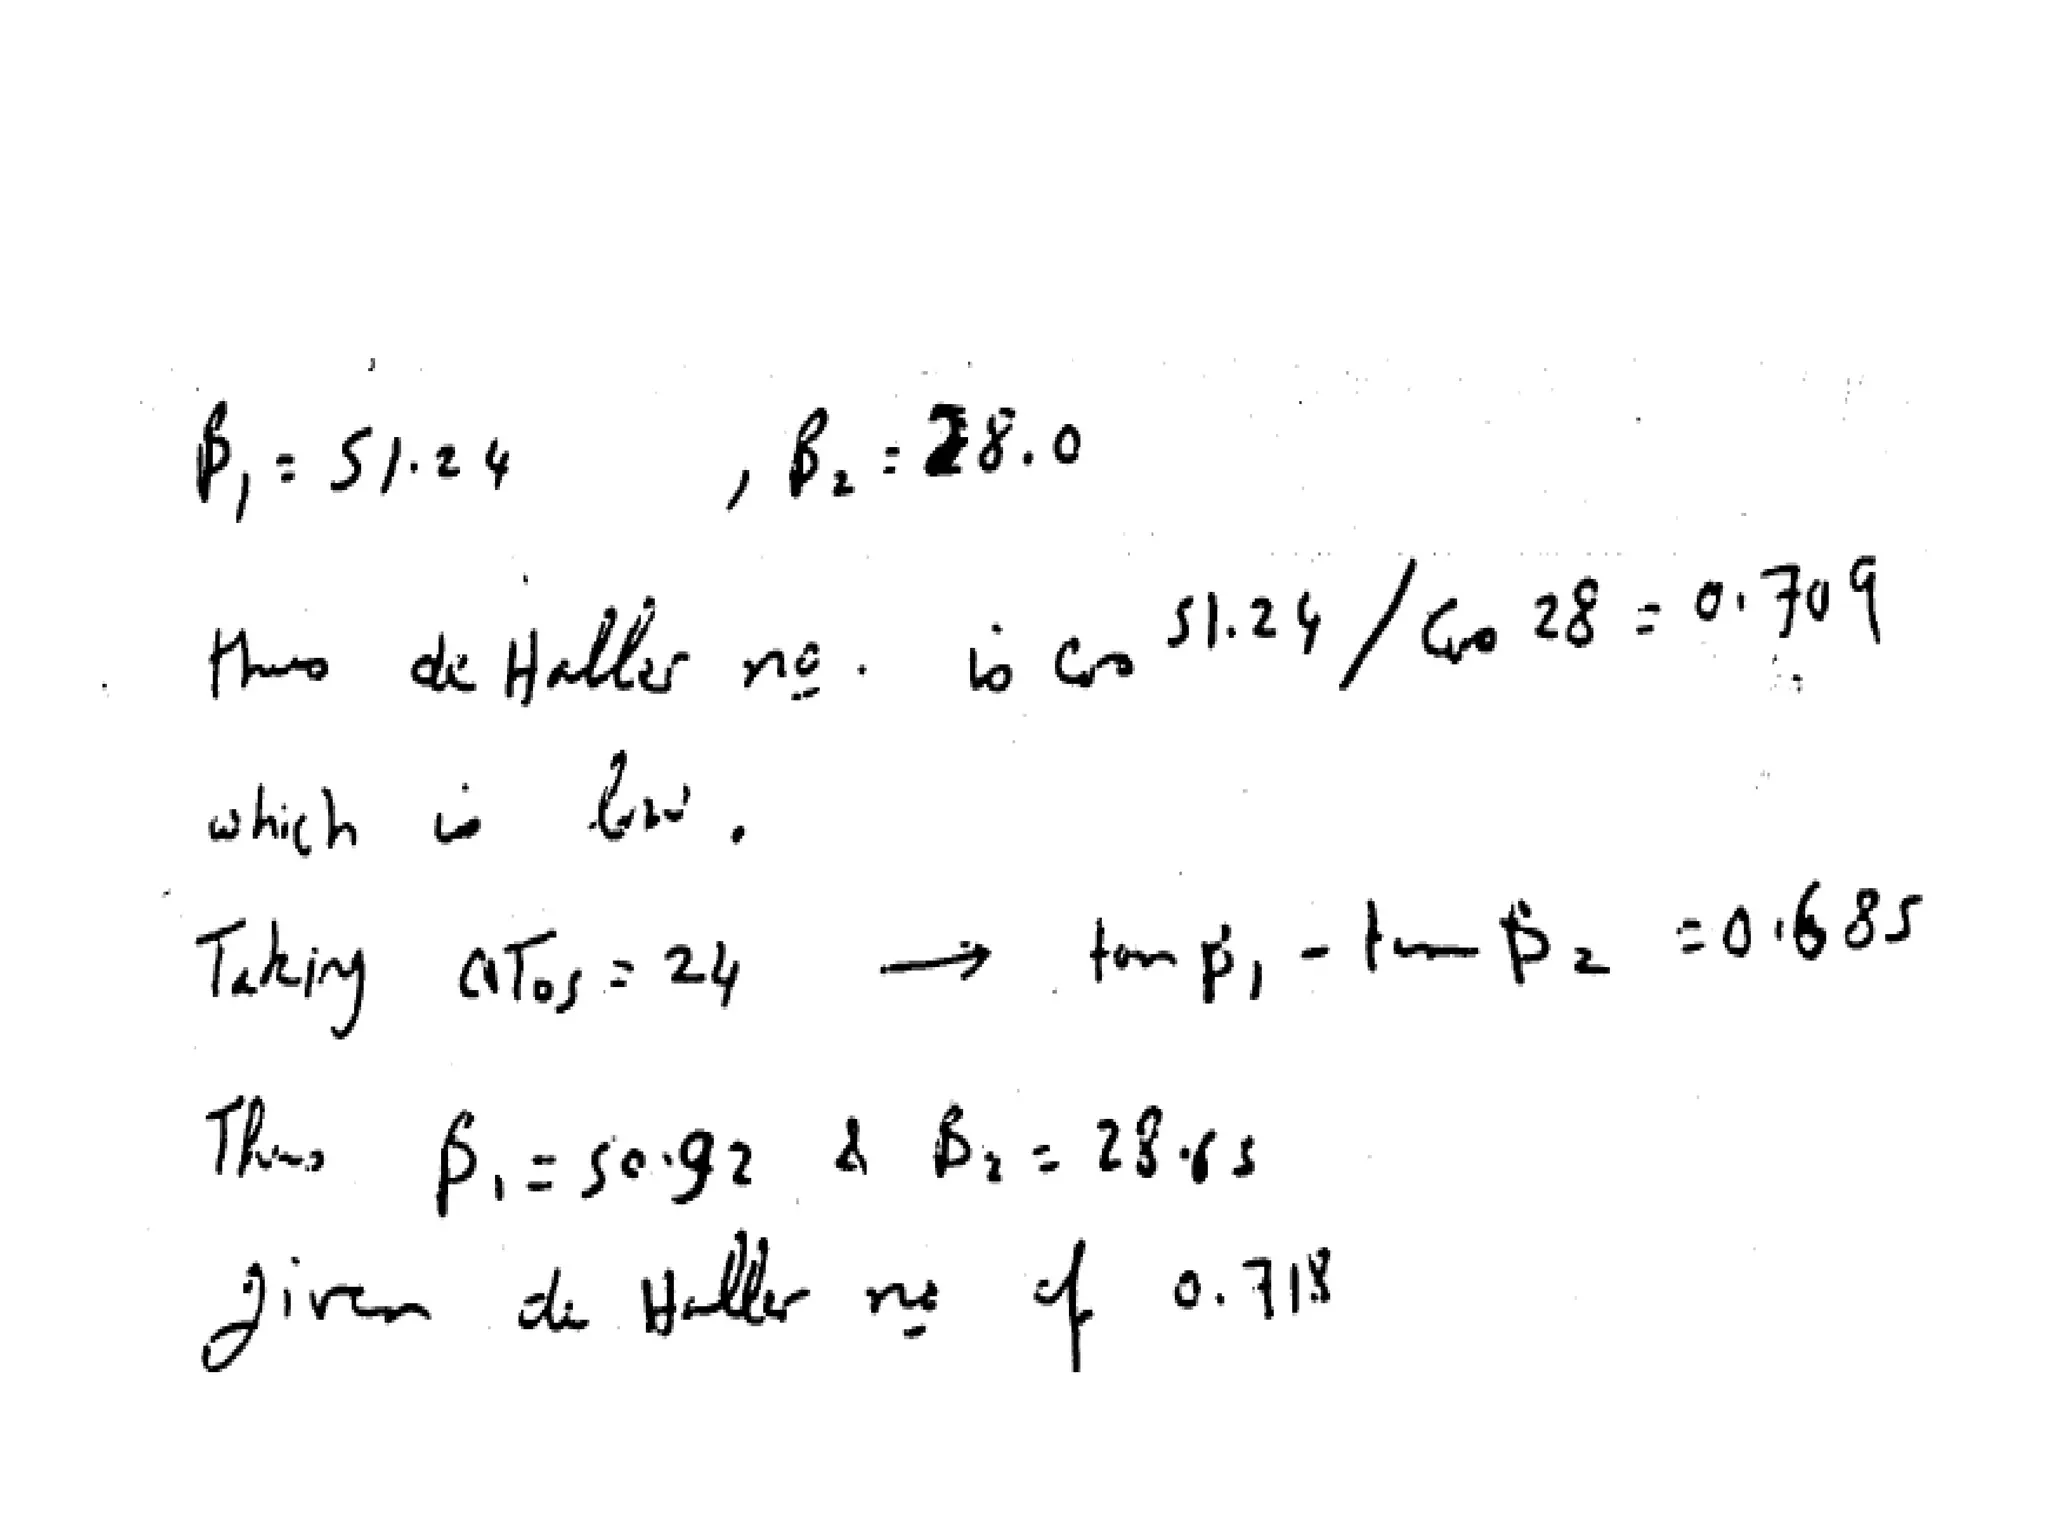 β₁ = 51.24 , β₂ = 28.0
thus de Haller no. is cos 51.24 / cos 28 = 0.709
which is low.
Taking ΔTos = 24 → tan β₁ - tan β₂ = 0.685
Thus β₁ = 50.92 & β₂ = 28.65
given de Haller no of 0.718